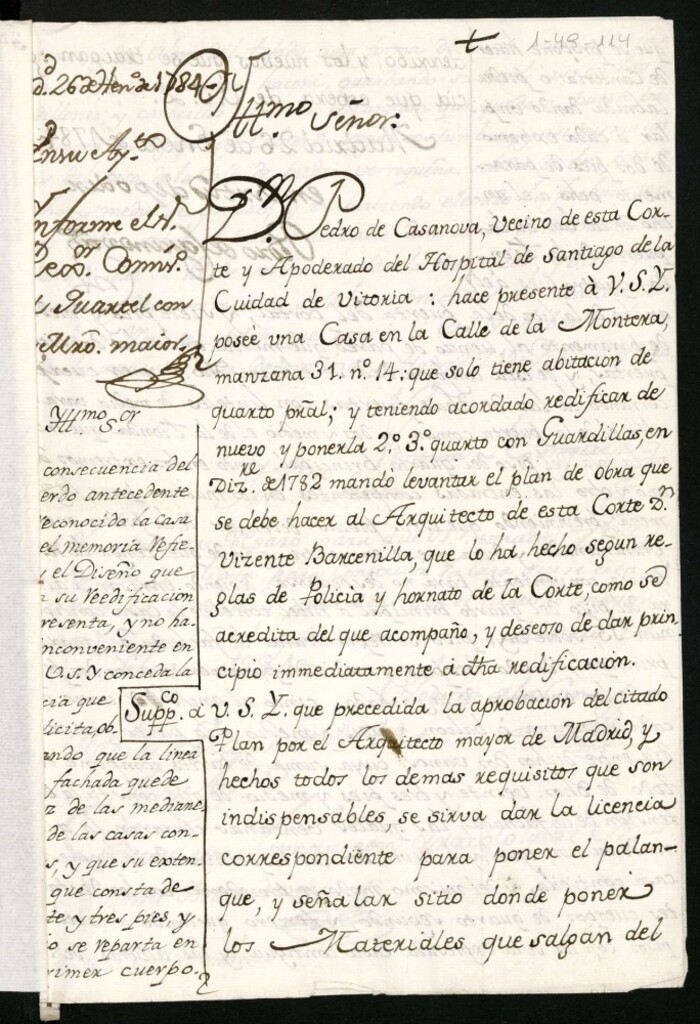 1-49-114
d. 26 de Hen.º de 1784
Yllmo Señor:
En su Ay.to
Ynforme el S.r
Rexo.r Comis.º
Quartel con
Mro. maior.
D.n Pedro de Casanova, Vecino de esta Cor-
te y Apoderado del Hospital de Santiago de la
Cuidad de Vitoria : hace presente à V. S. Y.
poseè una Casa en la Calle de la Montera,
manzana 31. nº 14: que solo tiene abitacion de
quarto pñal; y teniendo acordado redificar de
nuevo y ponerla 2.º 3.º quarto con Guardillas, en
Diz.re de 1782 mandó levantar el plan de obra que
se debe hacer al Arquitecto de esta Corte D.n
Vizente Barcenilla, que lo ha hecho segun re-
glas de Policia y hornato de la Corte, como se
acredita del que acompaño, y deseoso de dar prin-
cipio immediatamente à dha redificación.
Supp.co à V. S. Y. que precedida la aprobacion del citado
Plan por el Arquitecto mayor de Madrid, y
hechos todos los demas requisitos que son
indispensables, se sirva dar la licencia
correspondiente para poner el palan-
que, y señalar sitio donde poner
los Materiales que salgan del
Yllmo S.or
consecuencia del
erdo antecedente
reconocido la casa
el memoria refie-
y el Diseño que
su Reedificacion
resenta, y no ha-
inconveniente en
V. S. Y conceda la
cia que
licita, ob-
ando que la linea
fachada quede
z de las mediane
de las casas con-
s, y que su exten-
que consta de
te y tres pies, y
o se reparta en
rimer cuerpo.